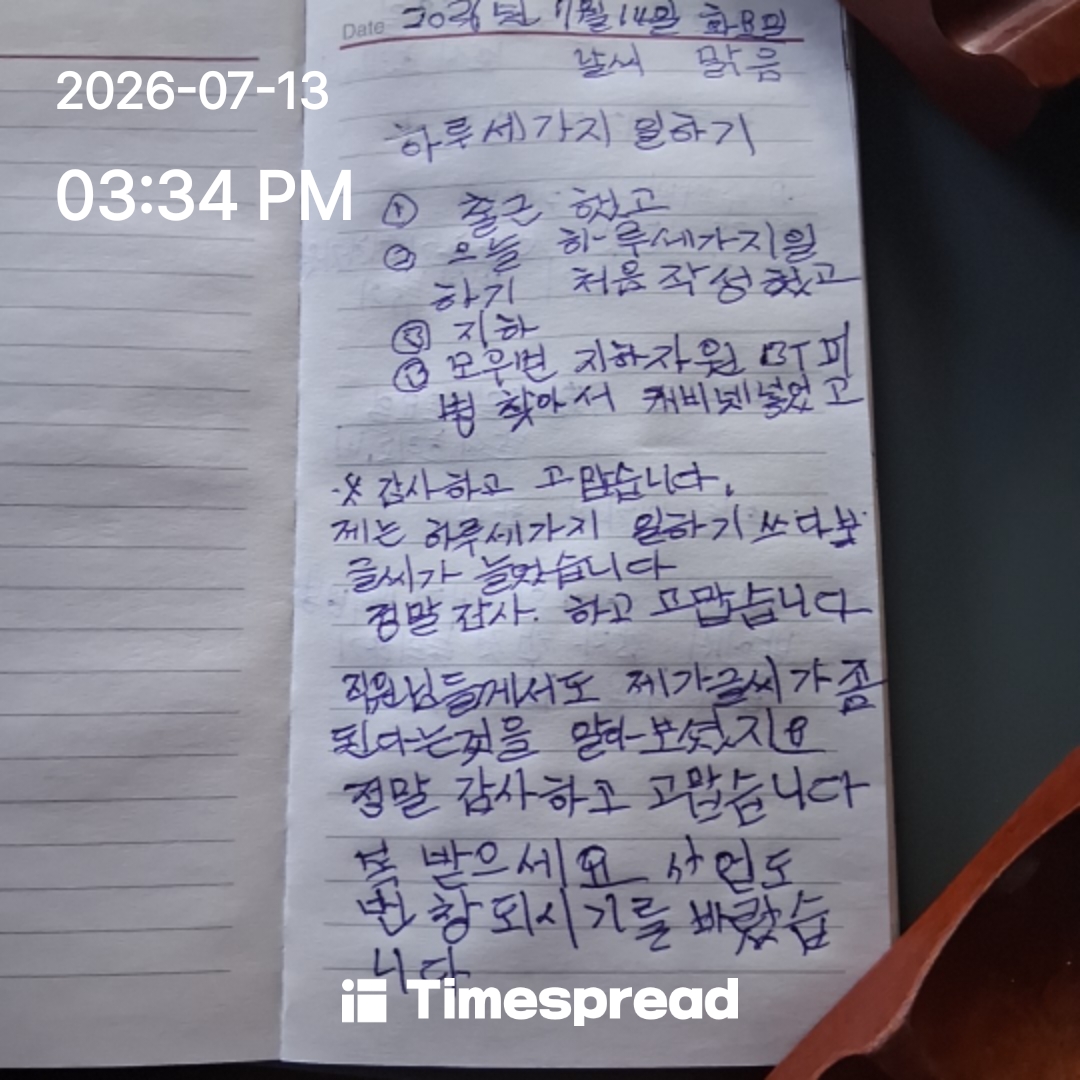 2026-07-13
03:34 PM
Date 2026년 7월 14일 화요일
날씨 맑음
하루세가지 일하기
① 출근 했고
② 오늘 하루세가지일
하기 처음 작성했고
③ 지하
⑬ 모우번 지하자원 BT피
병 찾아서 캐비넷넣었고
※ 감사하고 고맙습니다.
제는 하루세가지 일하기 쓰다보
글씨가 늘었습니다
정말 감사. 하고 고맙습니다
직원님들께서도 제가글씨가 좀
된다는것을 알아보셨지요
정말 감사하고 고맙습니다
복 받으세요 사업도
번창되시기를 바랬습
니다
Timespread